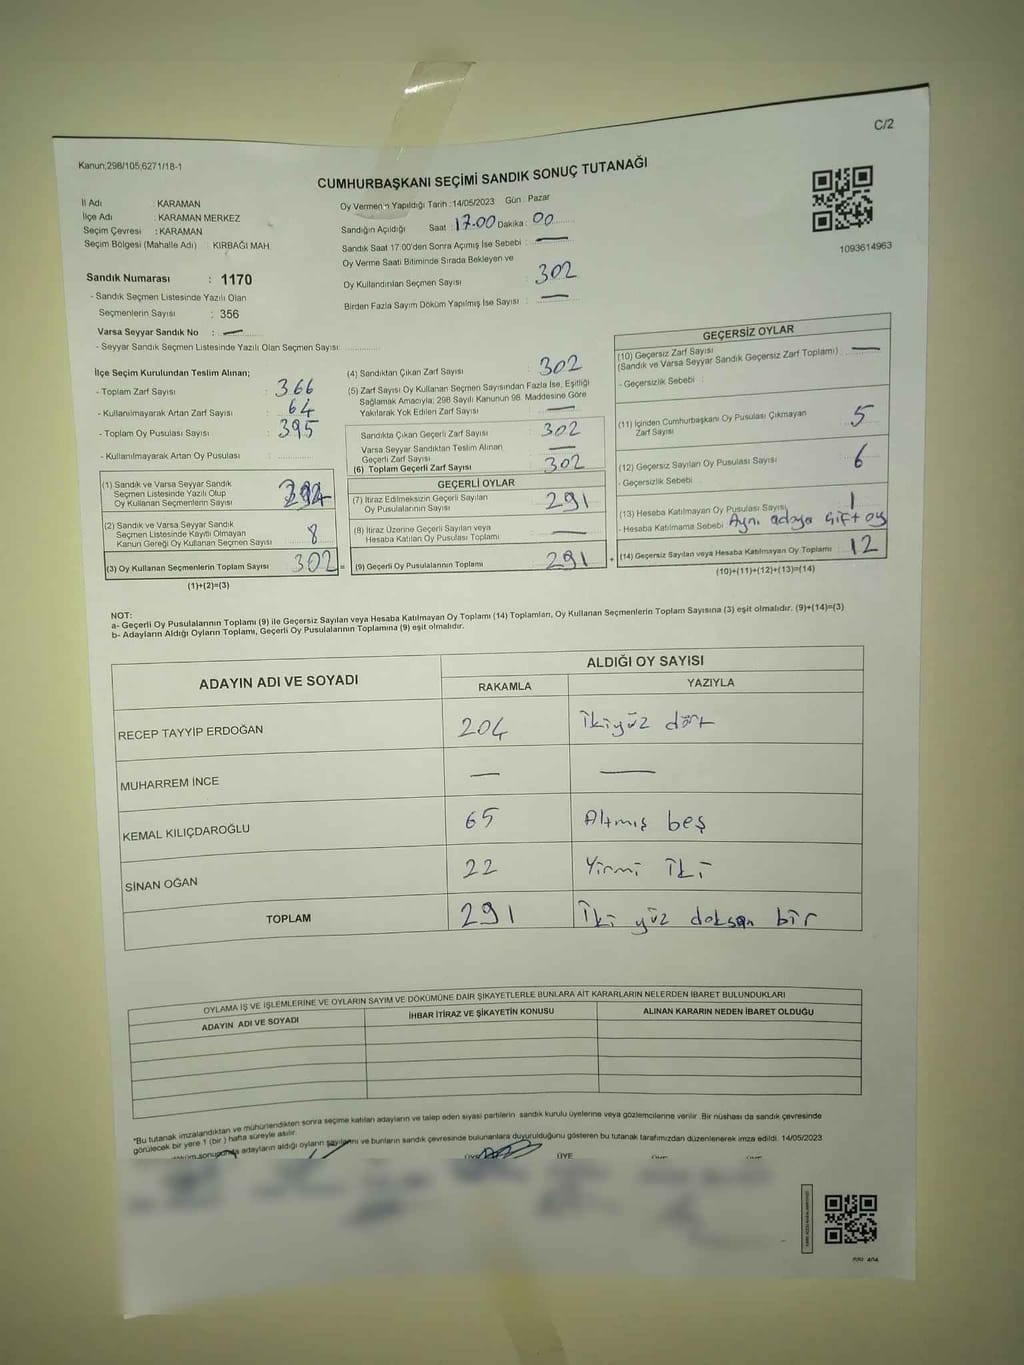 C/2
Kanun;298/105,6271/18-1
CUMHURBAŞKANI SEÇİMİ SANDIK SONUÇ TUTANAĞI
İl Adı : KARAMAN
İlçe Adı : KARAMAN MERKEZ
Seçim Çevresi : KARAMAN
Seçim Bölgesi (Mahalle Adı) : KIRBAĞI MAH
Sandık Numarası : 1170
- Sandık Seçmen Listesinde Yazılı Olan
Seçmenlerin Sayısı : 356
Varsa Seyyar Sandık No : —
- Seyyar Sandık Seçmen Listesinde Yazılı Olan Seçmen Sayısı:
Oy Vermenin Yapıldığı Tarih :14/05/2023 Gün : Pazar
Sandığın Açıldığı Saat : 17.00 Dakika : 00
Sandık Saat 17:00'den Sonra Açımış İse Sebebi : —
Oy Verme Saati Bitiminde Sırada Bekleyen ve
Oy Kullandırılan Seçmen Sayısı : 302
Birden Fazla Sayım Döküm Yapılmış İse Sayısı : —
1093614963
İlçe Seçim Kurulundan Teslim Alınan;
- Toplam Zarf Sayısı : 366
- Kullanılmayarak Artan Zarf Sayısı : 64
- Toplam Oy Pusulası Sayısı : 395
- Kullanılmayarak Artan Oy Pusulası :
(1) Sandık ve Varsa Seyyar Sandık
Seçmen Listesinde Yazılı Olup
Oy Kullanan Seçmenlerin Sayısı : 294
(2) Sandık ve Varsa Seyyar Sandık
Seçmen Listesinde Kayıtlı Olmayan
Kanun Gereği Oy Kullanan Seçmen Sayısı : 8
(3) Oy Kullanan Seçmenlerin Toplam Sayısı 302 =
(1)+(2)=(3)
(4) Sandıktan Çıkan Zarf Sayısı : 302
(5) Zarf Sayısı Oy Kullanan Seçmen Sayısından Fazla İse, Eşitliği
Sağlamak Amacıyla; 298 Sayılı Kanunun 98. Maddesine Göre
Yakılarak Yok Edilen Zarf Sayısı : —
Sandıkta Çıkan Geçerli Zarf Sayısı : 302
Varsa Seyyar Sandıktan Teslim Alınan
Geçerli Zarf Sayısı : —
(6) Toplam Geçerli Zarf Sayısı : 302
GEÇERLİ OYLAR
(7) İtiraz Edilmeksizin Geçerli Sayılan
Oy Pusulasının Sayısı : 291
(8) İtiraz Üzerine Geçerli Sayılan veya
Hesaba Katılan Oy Pusulası Toplamı : —
(9) Geçerli Oy Pusulalarının Toplamı : 291 +
GEÇERSİZ OYLAR
(10) Geçersiz Zarf Sayısı
(Sandık ve Varsa Seyyar Sandık Geçersiz Zarf Toplamı) : —
- Geçersizlik Sebebi :
(11) İçinden Cumhurbaşkanı Oy Pusulası Çıkmayan
Zarf Sayısı : 5
(12) Geçersiz Sayılan Oy Pusulası Sayısı : 6
- Geçersizlik Sebebi :
(13) Hesaba Katılmayan Oy Pusulası Sayısı : 1
- Hesaba Katılmama Sebebi : Aynı adaya çift oy
(14) Geçersiz Sayılan veya Hesaba Katılmayan Oy Toplamı : 12
(10)+(11)+(12)+(13)=(14)
NOT:
a- Geçerli Oy Pusulalarının Toplamı (9) ile Geçersiz Sayılan veya Hesaba Katılmayan Oy Toplamı (14) Toplamları, Oy Kullanan Seçmenlerin Toplam Sayısına (3) eşit olmalıdır. (9)+(14)=(3)
b- Adayların Aldığı Oyların Toplamı, Geçerli Oy Pusulalarının Toplamına (9) eşit olmalıdır.
ADAYIN ADI VE SOYADI
ALDIĞI OY SAYISI
RAKAMLA YAZIYLA
RECEP TAYYİP ERDOĞAN 204 İkiyüz dört
MUHARREM İNCE — —
KEMAL KILIÇDAROĞLU 65 Altmış beş
SİNAN OĞAN 22 Yirmi İki
TOPLAM 291 İki yüz doksan bir
OYLAMA İŞ VE İŞLEMLERİNE VE OYLARIN SAYIM VE DÖKÜMÜNE DAİR ŞİKAYETLERLE BUNLARA AİT KARARLARIN NELERDEN İBARET BULUNDUKLARI
ADAYIN ADI VE SOYADI İHBAR İTİRAZ VE ŞİKAYETİN KONUSU ALINAN KARARIN NEDEN İBARET OLDUĞU
*Bu tutanak imzalandıktan ve mühürlendikten sonra seçime katılan adayların ve talep eden siyasi partilerin sandık kurulu üyelerine veya gözlemcilerine verilir. Bir nüshası da sandık çevresinde
görülecek bir yere 1 (bir ) hafta süreyle asılır.
sonucunda adayların aldığı oyların sayılarını ve bunların sandık çevresinde bulunanlara duyurulduğunu gösteren bu tutanak tarafımızdan düzenlenerek imza edildi. 14/05/2023
ÜYE